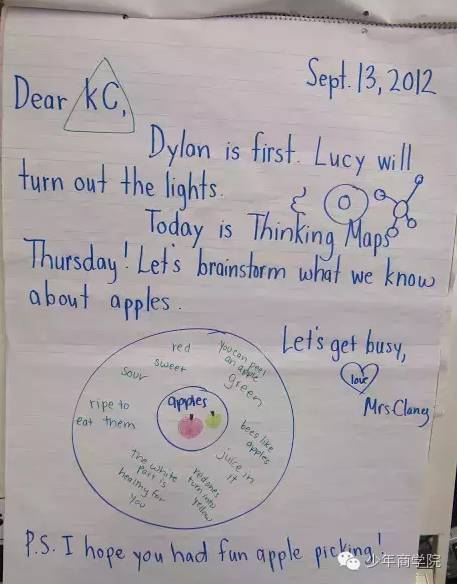 Sept. 13, 2012
Dear KC,
Dylan is first. Lucy will
turn out the lights.
Today is Thinking Maps
Thursday! Let's brainstorm what we know
about apples.
Let's get busy,
love
Mrs Clancy
apples
red
sweet
sour
ripe to
eat them
the white
part is
healthy for
you
red ones
turn into
yellow
juice in
it
bees like
apples
green
you can peel
an apple
P.S. I hope you had fun apple picking!
少年商学院